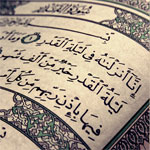 إِنَّا أَنزَلْنَاهُ فِي لَيْلَةِ الْقَدْرِ
لَيْلَةُ الْقَدْرِ خَيْرٌ مِّنْ أَلْفِ شَهْرٍ
فِيهَا بِإِذْنِ رَبِّهِم مِّن كُلِّ أَمْرٍ